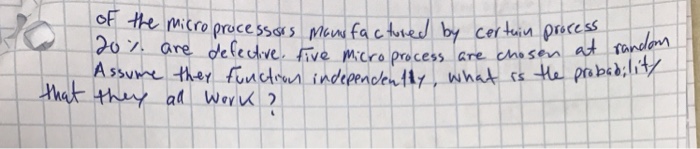 of the microprocessors manufactured by certain process
20% are defective. five microprocess are chosen at random
Assume they function independently, what is the probability
that they all work?